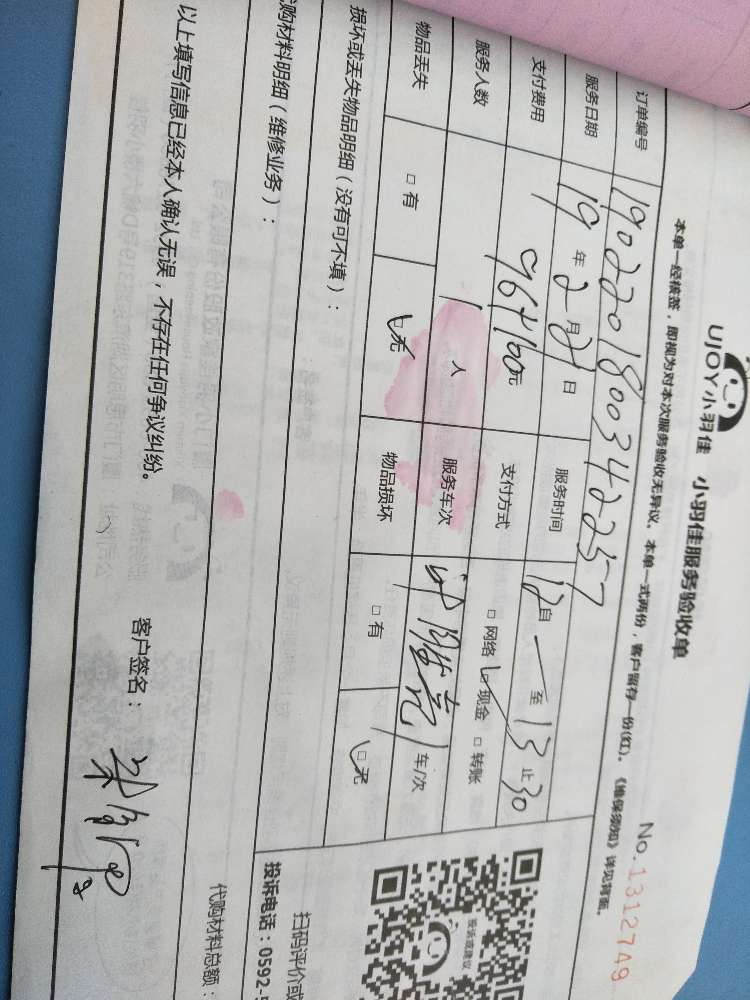 UJOY小羽佳 小羽佳服务验收单
No.1312749
本单一经核签，即视为对本次服务验收无异议。本单一式两份，客户留存一份(红)。《维保须知》详见背面。
订单编号 1902201800342257
服务日期 19年2月21日 服务时间 12自 至13止30
支付费用 元 支付方式 □网络 □现金 □转账
服务人数 1人 服务车次 车/次
物品丢失 □有 □无 物品损坏 □有 □无
损坏或丢失物品明细（没有可不填）：
购材料明细（维修业务）：
代购材料总额：
以上填写信息已经本人确认无误，不存在任何争议纠纷。
客户签名：
投诉或建议
扫码评价或
投诉电话：0592-5